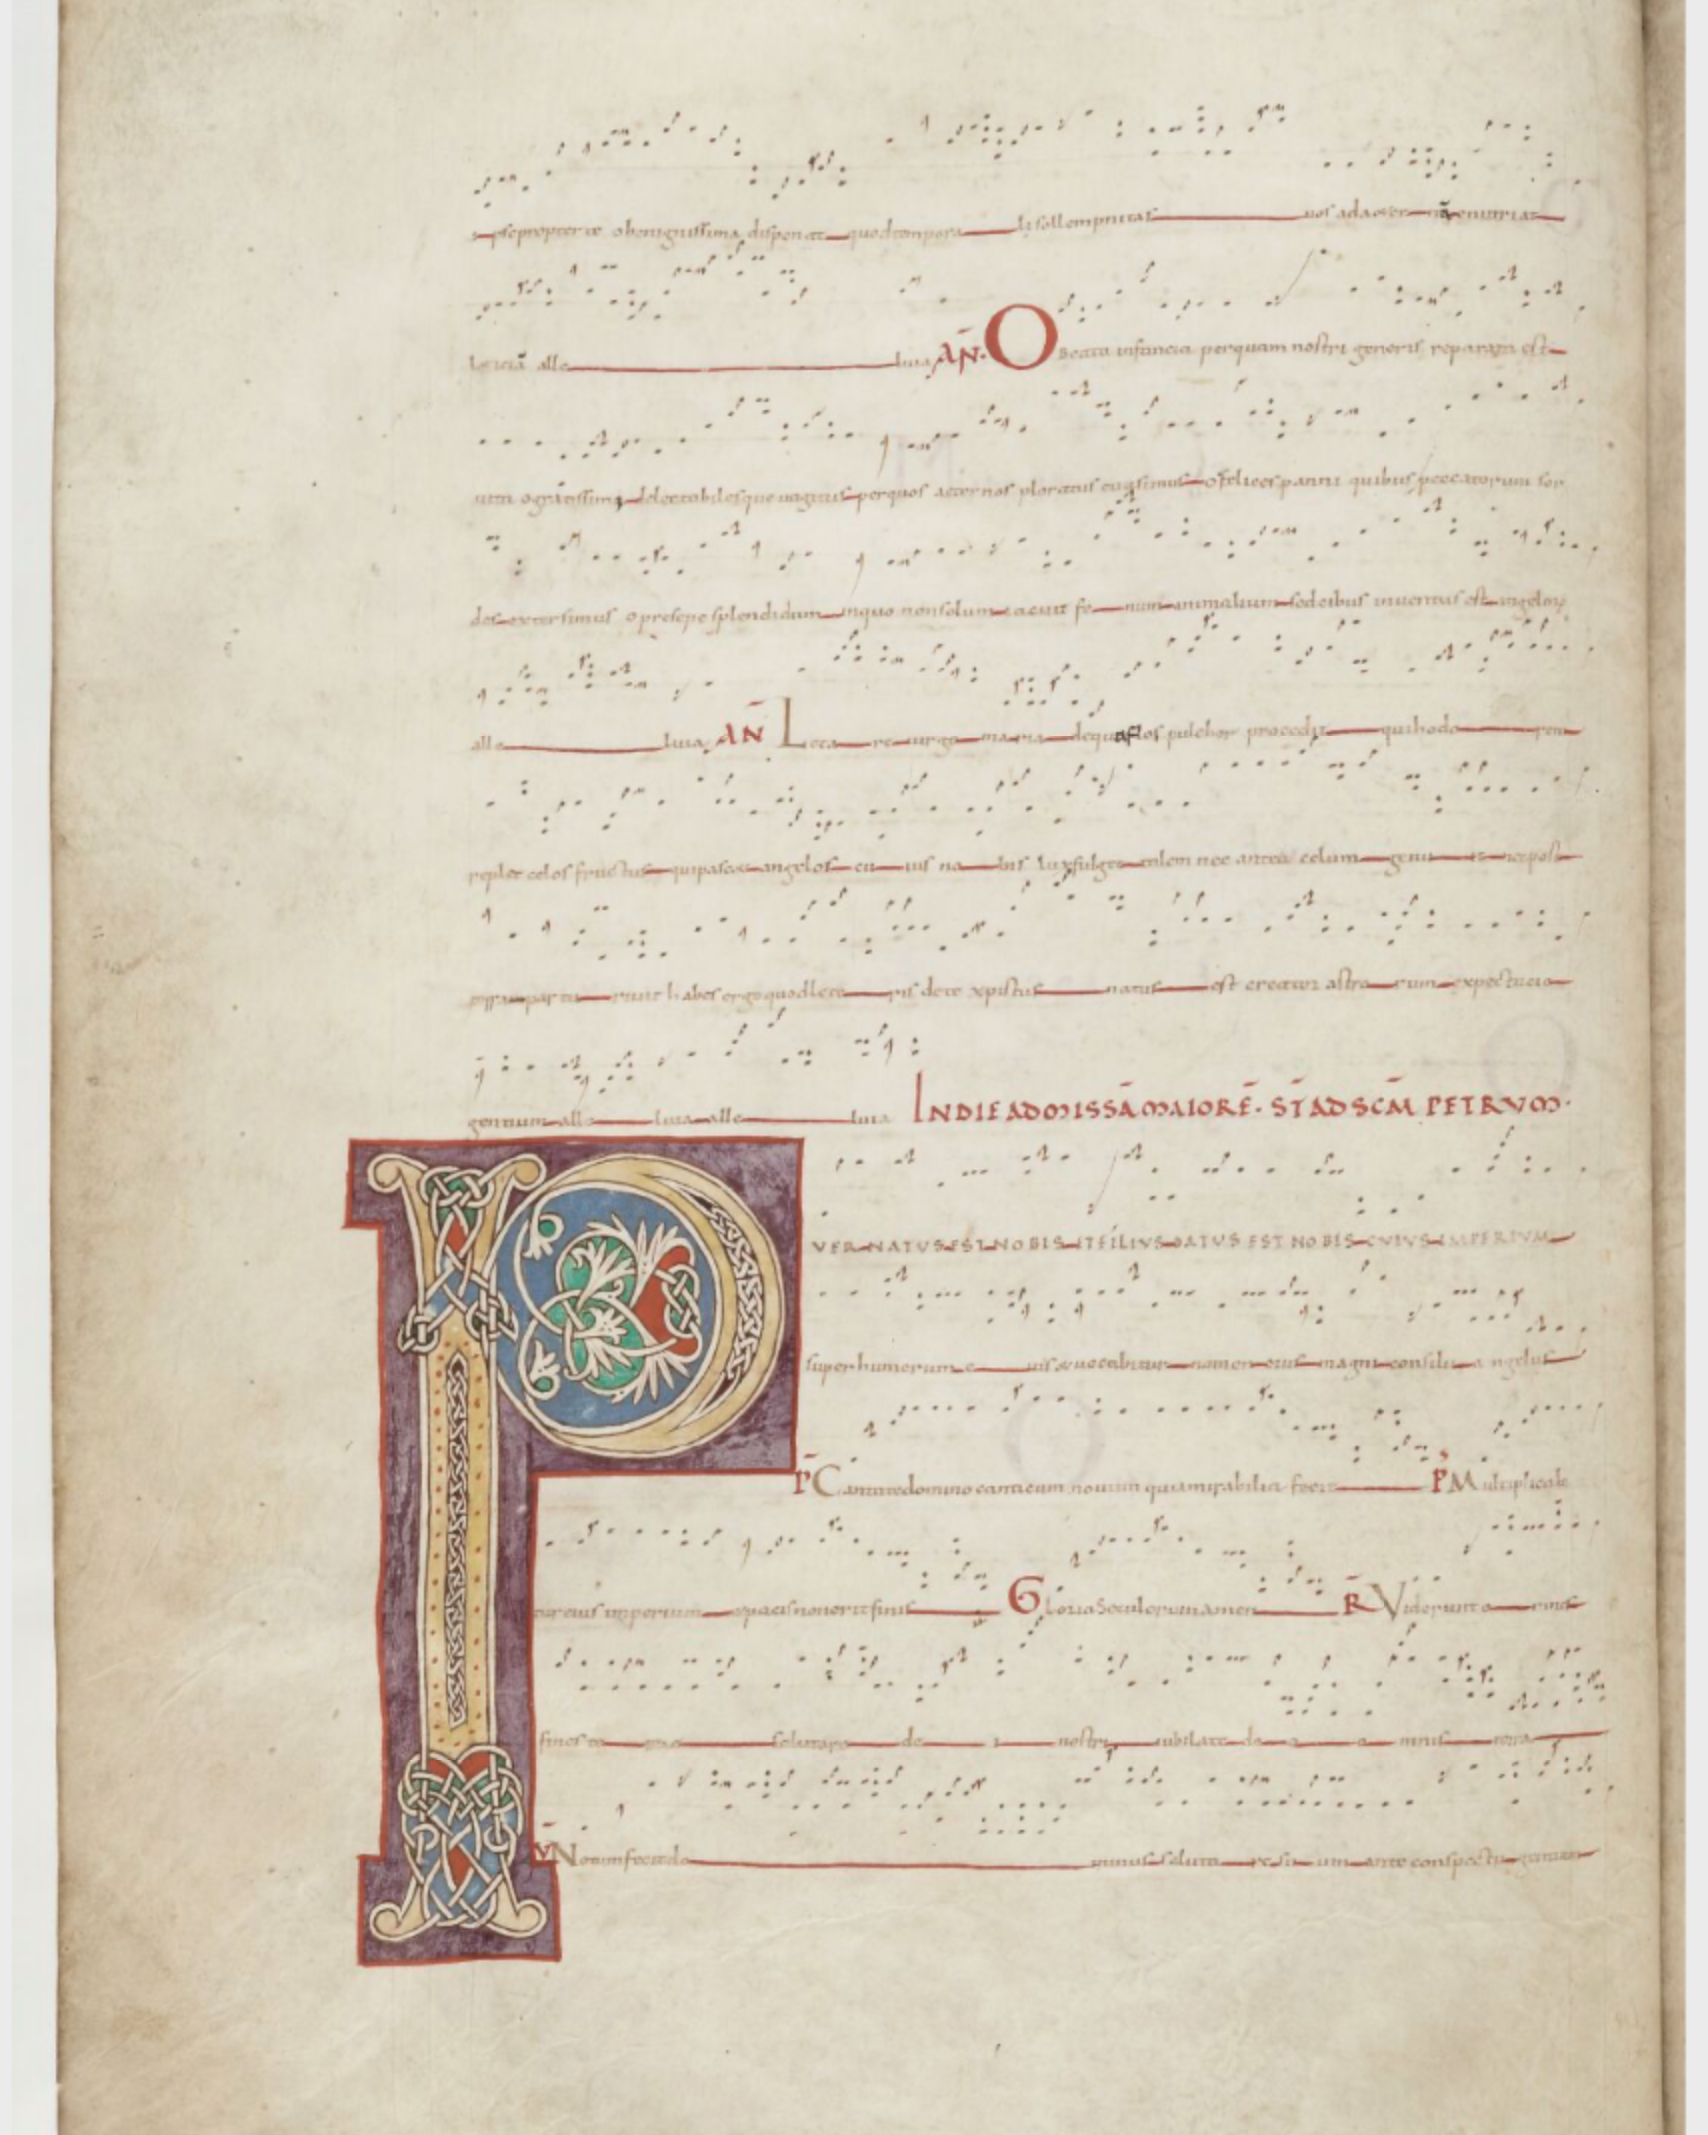 ipse propter te o benignissima disponat quod tempora li sollempnitas nos ad aeter nā
leticiā alle luia AÑ. O Beata infancia per quam nostri generis reparata est
uita o gratissimi delectabilesque uagitus per quos aeternos ploratus euasimus o felices panni quibus peccatorum sor
des extersimus o presepe splendidum inquo non solum iacuit fe num animalium sed cibus inuentus est angelorum
alle luia AÑ Leta re uirgo maria de qua flos pulcher procedit qui hodo rem
replet celos fructus qui pascit angelos cu ius no bis lux fulget talem nec antea celum genu it nec post
terra par tu riuit habes ergo quod lete ris de te xpistus natus est creator astro rum expectacio
gentium alle luia alle luia INDIE ADMISSĀ MAIORĒ. ST̄ AD SC̄M PETRVM.
P VER NATVS EST NOBIS ET FILIVS DATVS EST NOBIS CVIVS IMPERIVM
super humerum e ius & uocabitur nomen eius magni consilii angelus
P̄ Cantate domino canticum nouum quia mirabilia fecit P̄ Multiplicabi
tur eius imperium & pacis non erit finis Gloria Seculorum amen R̄ Viderunt o mnes
fines te rre salutare de i nostri iubilate de o o mnis terra
V̄ Notum fecit do minus saluta re su um ante conspectum gentium